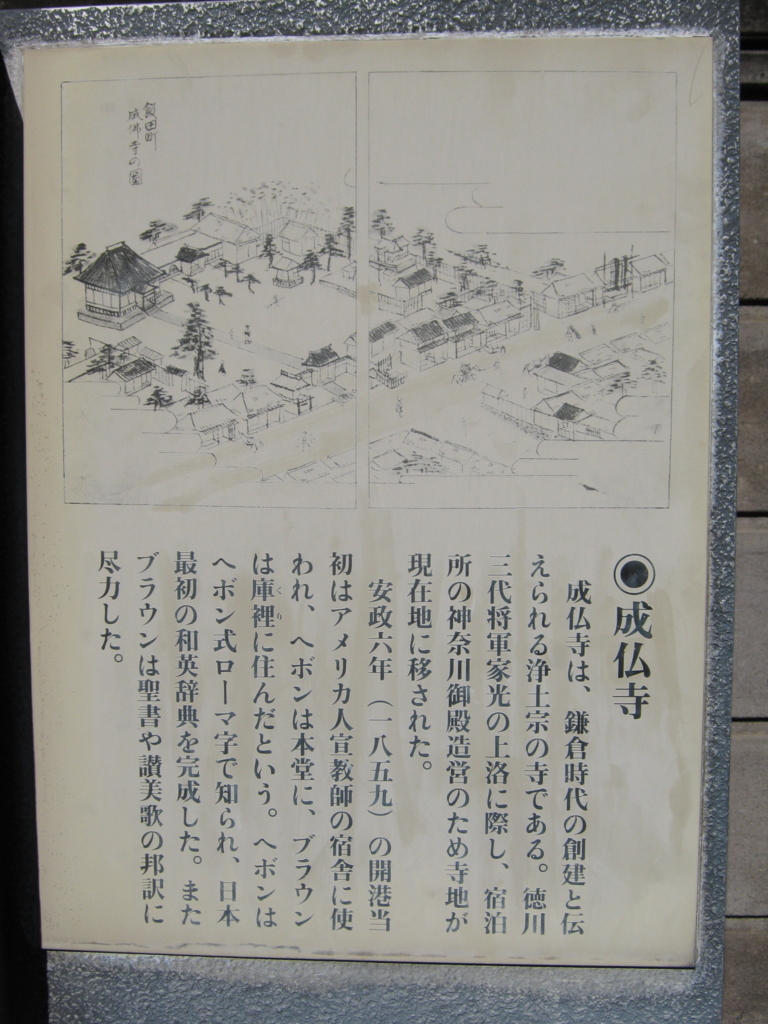 成佛寺の図
◉成仏寺
成仏寺は、鎌倉時代の創建と伝
えられる浄土宗の寺である。徳川
三代将軍家光の上洛に際し、宿泊
所の神奈川御殿造営のため寺地が
現在地に移された。
安政六年（一八五九）の開港当
初はアメリカ人宣教師の宿舎に使
われ、ヘボンは本堂に、ブラウン
は庫裡くりに住んだという。ヘボンは
ヘボン式ローマ字で知られ、日本
最初の和英辞典を完成した。また
ブラウンは聖書や讃美歌の邦訳に
尽力した。